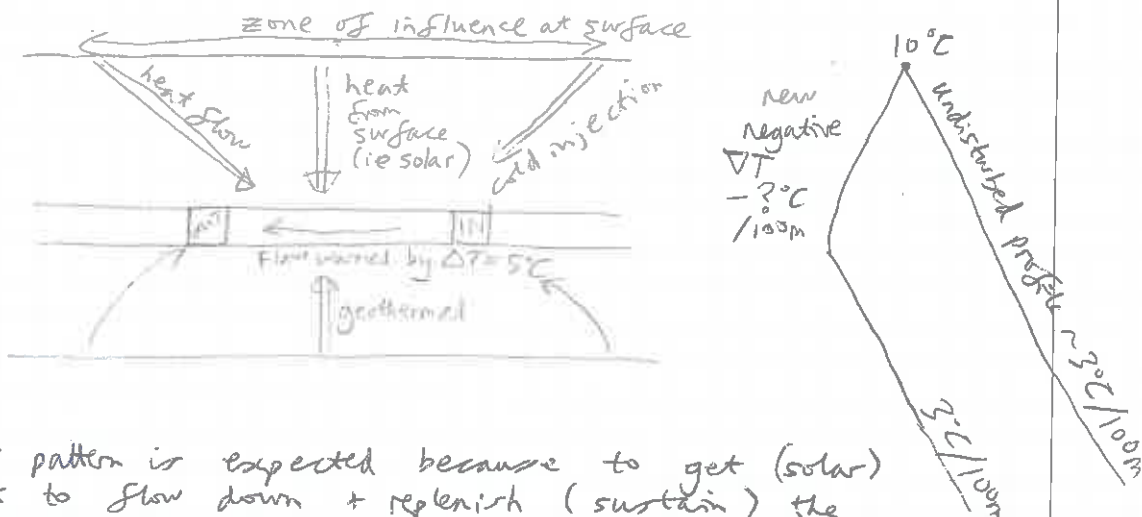 zone of influence at surface
heat flow
heat
from
surface
(ie solar)
cold injection
OUT
IN
Flow warmed by ΔT = 5°C
geothermal
10°C
undisturbed profile ~3°C/100m
new
negative
∇T
-?°C
/100m
3°C/100m
pattern is expected because to get (solar)
to flow down + replenish (sustain) the